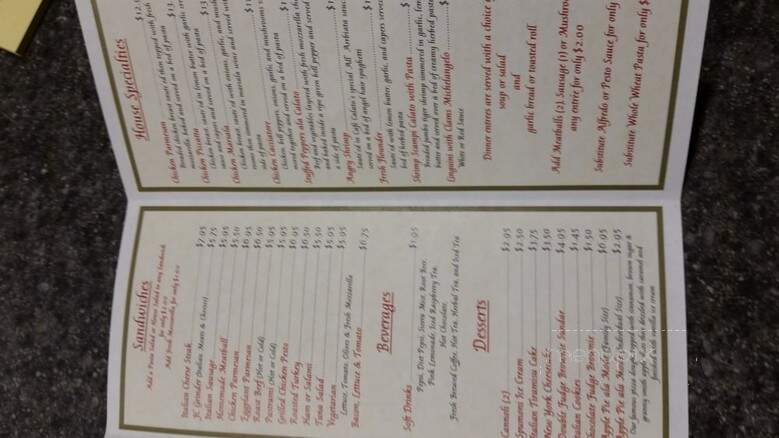 House Specialties
Chicken Parmesan
Breaded chicken breast sauteéd then topped with fresh
mozzarella baked and served on a bed of pasta
Chicken Piccata
Chicken breast sauteéd in lemon butter with garlic
sauce and capers and served on a bed of pasta
Chicken Marsala
Chicken breast sauteéd with onions garlic, and
then simmered in marsala wine and served
side of pasta
Chicken Cacciatore
Chicken, bell peppers, onions, garlic and mushrooms
together and served on a bed of pasta
Stuffed Peppers ala Calato
Beef and vegetables layered with fresh mozzarella
and baked inside a ripe green bell pepper and served
a side of pasta
Angry Shrimp
Sauteéd in Café Calato's special All Arrabiata
served on a bed of angel hair spaghetti
Fresh Flounder
Sauteéd with lemon butter, garlic, and capers serves
bed of herbed pasta
Shrimp Scampi Calato with Pasta
Breaded jumbo tiger shrimp simmered in garlic,
butter and served over a bed of creamy herbed pasta
Linguini with Clams Michelangelo
White or Red Sauce
Dinner entrees are served with a choice
soup or salad
and
garlic bread or toasted roll
Add Meatballs (2), Sausage (1) or
any entrée for only $2.00
Substitute Alfredo or Pesto Sauce for only
Substitute Whole Wheat Pasta for only
Sandwiches
Add a Pasta Salad or House Salad to any Sandwich
for only $2.00
Add Fresh Mozzarella for only $1.00
Italian Cheese Steak $7.95
JC Grinder (Italian Meats & Cheese) $5.75
Italian Sausage $5.95
Homemade Meatball $5.50
Chicken Parmesan $6.95
Eggplant Parmesan $6.50
Roast Beef (Hot or Cold) $5.95
Pastrami (Hot or Cold) $5.95
Grilled Chicken Pesto $6.95
Roasted Turkey $6.50
Ham or Salami $5.50
Tuna Salad $5.95
Vegetarian $5.95
Lettuce, Tomato, Olives & Fresh Mozzarella
Bacon, Lettuce & Tomato $6.75
Beverages
Soft Drinks $1.95
Pepsi, Diet Pepsi, Sierra Mist, Root Beer,
Pink Lemonade, Iced Raspberry Tea,
Hot Chocolate,
Fresh Brewed Coffee, Hot Tea, Herbal Tea, and Iced Tea
Desserts
Cannoli (2) $2.95
Spumoni Ice Cream $2.50
Italian Tiramisu Cake $3.75
New York Cheesecake $3.50
Double Fudge Brownie Sundae $4.95
Italian Cookies $1.45
Chocolate Fudge Brownie $1.50
Apple Pie ala Mode (Family Size) $6.95
Apple Pie ala Mode (Individual Size) $2.95
Our famous pizza dough, topped with cinnamon, brown sugar &
granny smith apples then drizzled with caramel and
finished with vanilla ice cream